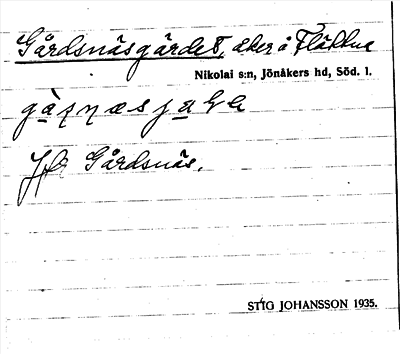 Gårdsnäsgärdet, åker å Fläkkne
Nikolai s:n, Jönåkers hd, Söd. l.
Jfr Gårdsnäs.
STIG JOHANSSON 1935.